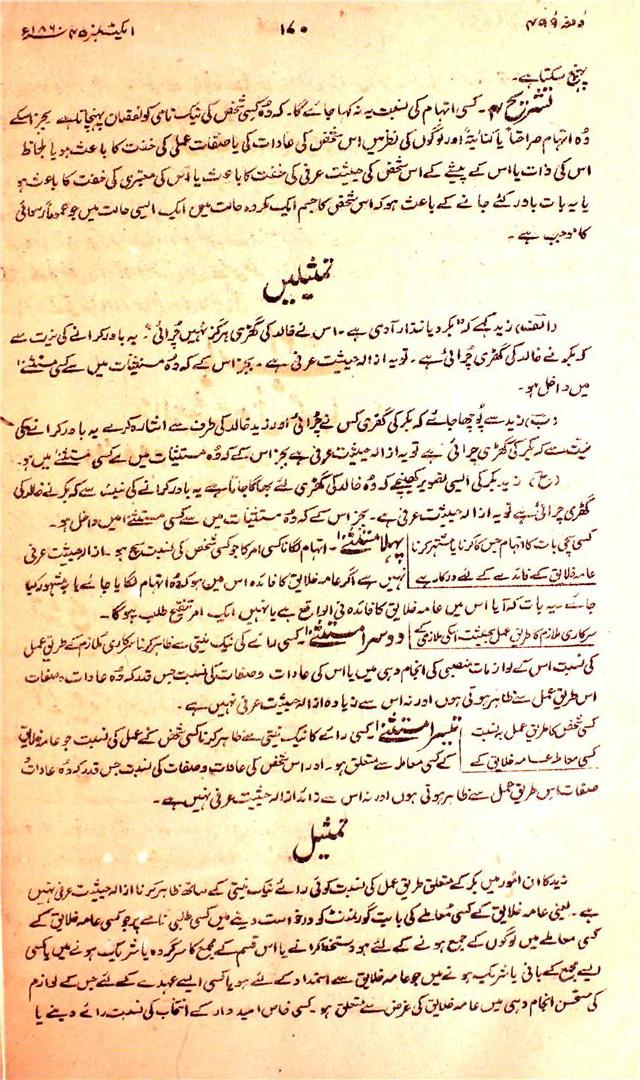 دفعہ ۴۹۹
۱۷۰
ایکٹ نمبر ۴۵ ۱۸۶۰ء
پہنچ سکتا ہے۔
تشریح ۴۔ کسی اتہام کی نسبت یہ نہ کہا جائے گا۔ کہ وہ کسی شخص کی نیک نامی کو نقصان پہنچاتا ہے بجز اسکے
وہ اتہام صراحتاً یا کنایتاً اور لوگوں کی نظر میں اس شخص کی عادات کی یا صفات عقلی کی خفت کا باعث ہو یا بلحاظ
اس کی ذات یا اس کے پیشے کے اس شخص کی حیثیت عرفی کی خفت کا باعث یا اس کی معتبری کی خفت کا باعث ہو
یا یہ بات باور کئے جانے کے باعث ہو کہ اس شخص کا جسم ایک مکروہ حالت میں ایک ایسی حالت میں جو عموماً رسوائی
کا موجب ہے۔
تمثیلیں
(الف) زید کہے کہ "بکر دیانتدار آدمی ہے۔ اس نے خالد کی گھڑی ہرگز نہیں چرائی"۔ یہ باور کرانے کی نیت سے
کہ بکر نے خالد کی گھڑی چرائی ہے۔ تو یہ ازالہ حیثیت عرفی ہے۔ بجز اس کے کہ وہ مستثنیات میں سے کسی مستثنےٰ
میں داخل ہو۔
(ب) زید سے پوچھا جائے کہ بکر کی گھڑی کس نے چرائی اور زید خالد کی طرف سے اشارہ کرے یہ باور کرانیکی
نیت سے کہ بکر کی گھڑی چرائی ہے تو یہ ازالہ حیثیت عرفی ہے بجز اس کے کہ وہ مستثنیات میں سے کسی مستثنےٰ میں ہو۔
(ج) زید بکر کی ایسی تصویر کھینچے کہ وہ خالد کی گھڑی لئے بھاگا جاتا ہے یہ باور کرانے کی نیت سے کہ بکر نے خالد کی
گھڑی چرائی ہے تو یہ ازالہ حیثیت عرفی ہے۔ بجز اس کے کہ وہ مستثنیات میں سے کسی مستثنےٰ میں داخل ہو۔
کسی سچی بات کا اتہام جس کا کرنا یا مشتہر کرنا
عامہ خلایق کے فائدے کے لئے درکار ہے
پہلا مستثنےٰ۔ اتہام لگانا کسی امر کا جو کسی شخص کی نسبت سچ ہو۔ ازالہ حیثیت عرفی
نہیں ہے اگر عامہ خلایق کا فائدہ اس میں ہو کہ وہ اتہام لگایا جائے یا مشہور کیا
جائے۔ یہ بات کہ آیا اس میں عامہ خلایق کا فائدہ فی الواقع ہے یا نہیں ایک امر تنقیح طلب ہوگا۔
سرکاری ملازم کا طریق عمل بحیثیت اسکی ملازمی کے
دوسرا مستثنےٰ۔ کسی رائے کی نیک نیتی سے ظاہر کرنا سرکاری ملازم کے طریق عمل
کی نسبت اس کے لوازمات منصبی کی انجام دہی میں یا اس کی عادات و صفات کی نسبت جس قدر کہ وہ عادات و صفات
اس طریق عمل سے ظاہر ہوتی ہوں اور نہ اس سے زیادہ ازالہ حیثیت عرفی نہیں ہے۔
کسی شخص کا طریق عمل بہ نسبت
کسی معاملہ عامہ خلایق کے
تیسرا مستثنےٰ۔ کسی رائے کا نیک نیتی سے ظاہر کرنا کسی شخص کے عمل کی نسبت جو عامہ خلایق
کے کسی معاملہ سے متعلق ہو۔ اور اس شخص کی عادات و صفات کی نسبت جس قدر کہ وہ عادات
صفات اس طریق عمل سے ظاہر ہوتی ہوں اور نہ اس سے زائد ازالہ حیثیت عرفی نہیں ہے۔
تمثیل
زید کا ان امور میں بکر کے متعلق طریق عمل کی نسبت کوئی رائے نیک نیتی کے ساتھ ظاہر کرنا ازالہ حیثیت عرفی نہیں
ہے۔ یعنی عامہ خلایق کے کسی معاملے کی بابت گورنمنٹ کو درخواست دینے میں کسی طلبی نامے پر جو کسی عامہ خلایق کے
کسی معاملے میں لوگوں کے جمع ہونے کے لئے ہو دستخط کرانے یا اس قسم کے مجمع کا سرگروہ یا شریک ہونے میں یا کسی
ایسے مجمع کے بانی یا شریک ہونے میں جو عامہ خلایق سے استمداد کے لئے ہو یا کسی ایسے عہدے کے لئے جس کے لوازم
کی مستحسن انجام دہی میں عامہ خلایق کی غرض سے متعلق ہو۔ کسی خاص امیدوار کے انتخاب کی نسبت رائے دینے یا